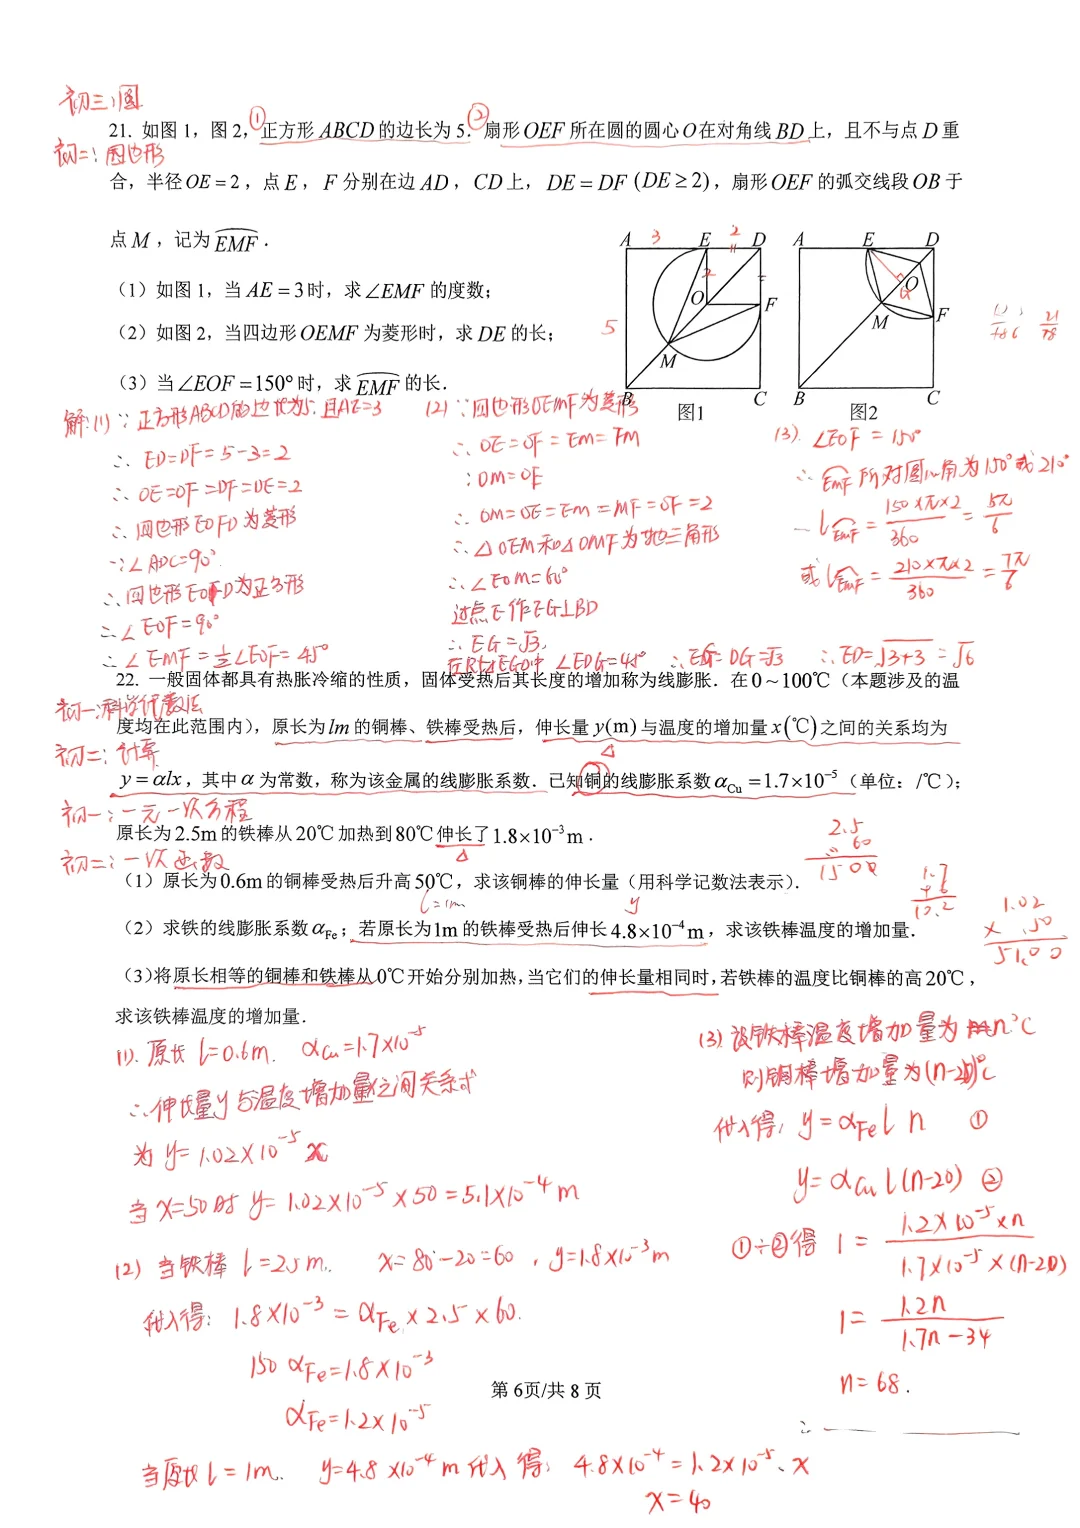 初三:圆
21. 如图 1，图 2，①正方形 ABCD 的边长为 5．②扇形 OEF 所在圆的圆心 O 在对角线 BD 上，且不与点 D 重
初二:四边形
合，半径 OE = 2，点 E，F 分别在边 AD，CD 上，DE = DF (DE ≥ 2)，扇形 OEF 的弧交线段 OB 于
点 M，记为 EMF．
（1）如图 1，当 AE = 3 时，求∠EMF 的度数；
（2）如图 2，当四边形 OEMF 为菱形时，求 DE 的长；
（3）当∠EOF = 150° 时，求 EMF 的长．
A 3 E 2 D
2
O F
5
M
B C
图1
A E D
O
G
M F
B C
图2
解:(1) ∵正方形ABCD的边长为5.且AE=3
∴ ED=DF=5-3=2
∴ OE=OF=DF=DE=2
∴ 四边形EOFD为菱形
∵∠ADC=90°
∴ 四边形EOFD为正方形
∴∠EOF=90°
∴∠EMF=½∠EOF=45°
(2) ∵四边形OEMF为菱形
∴ OE=OF=EM=FM
∵OM=OF
∴ OM=OE=EM=MF=OF=2
∴△OEM和△OMF为等边三角形
∴∠EOM=60°
过点E作EG⊥BD
∴ EG=√3.
在Rt△EGD中 ∠EDG=45° ∴EG=DG=√3 ∴ED=√3+3=√6
(3). ∠EOF=150°
∴ EMF所对圆心角为150°或210°
l EMF = 150×π×2/360 = 5π/6
或 l EMF = 210×π×2/360 = 7π/6
22. 一般固体都具有热胀冷缩的性质，固体受热后其长度的增加称为线膨胀．在 0～100℃（本题涉及的温
初一:科学记数法
度均在此范围内），原长为 lm 的铜棒、铁棒受热后，伸长量 y(m) 与温度的增加量 x(℃) 之间的关系均为
初二:计算
y = αlx，其中 α 为常数，称为该金属的线膨胀系数．已知铜的线膨胀系数 αCu = 1.7×10⁻⁵（单位：/℃）；
初一:一元一次方程
原长为 2.5m 的铁棒从 20℃ 加热到 80℃ 伸长了 1.8×10⁻³m．
初二:一次函数
（1）原长为 0.6m 的铜棒受热后升高 50℃，求该铜棒的伸长量（用科学记数法表示）．
l=1m y
（2）求铁的线膨胀系数 αFe；若原长为 1m 的铁棒受热后伸长 4.8×10⁻⁴m，求该铁棒温度的增加量．
（3）将原长相等的铜棒和铁棒从 0℃ 开始分别加热，当它们的伸长量相同时，若铁棒的温度比铜棒的高 20℃，
求该铁棒温度的增加量．
2.5
60
1500
1.7
6
10.2
1.02
× .50
51.00
(1). 原长 l=0.6m. αCu=1.7×10⁻⁵
∴伸长量y与温度增加量x之间关系式
为 y=1.02×10⁻⁵x
当x=50时 y=1.02×10⁻⁵×50=5.1×10⁻⁴m
(2) 当铁棒 l=2.5m. x=80-20=60，y=1.8×10⁻³m
代入得: 1.8×10⁻³=αFe×2.5×60.
150αFe=1.8×10⁻³
αFe=1.2×10⁻⁵
当原长l=1m. y=4.8×10⁻⁴m代入得: 4.8×10⁻⁴=1.2×10⁻⁵·x
x=40
(3). 设铁棒温度增加量为n℃
则铜棒增加量为(n-20)℃
代入得: y=αFe l n ①
y=αCu l(n-20) ②
①÷②得 1=1.2×10⁻⁵×n/1.7×10⁻⁵×(n-20)
1=1.2n/1.7n-34
n=68.
∴
第 6页/共 8 页